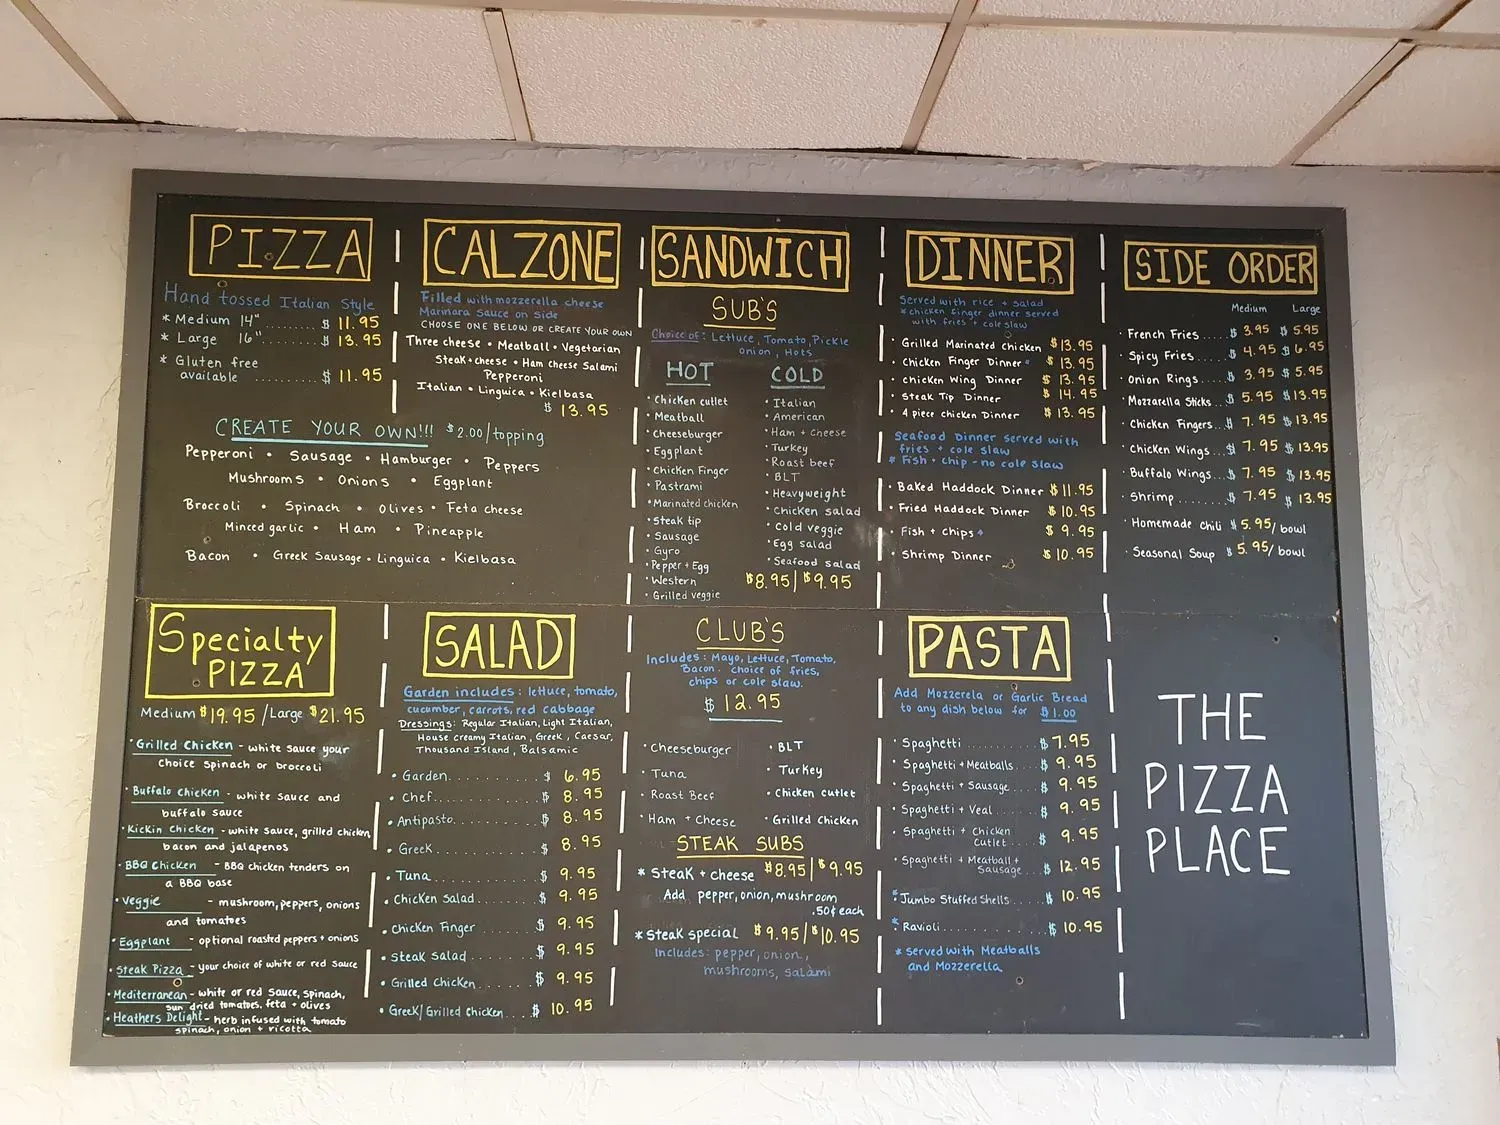 PIZZA
Hand tossed Italian Style
* Medium 14" ........ $ 11.95
* Large 16" ........ $ 13.95
* Gluten free
available .......... $ 11.95
CALZONE
Filled with mozzerella cheese
Marinara Sauce on Side
CHOOSE ONE BELOW OR CREATE YOUR OWN
Three cheese • Meatball • Vegetarian
Steak + cheese • Ham cheese Salami
Pepperoni
Italian • Linguica • Kielbasa
$ 13.95
CREATE YOUR OWN!!! $2.00/topping
Pepperoni • Sausage • Hamburger • Peppers
Mushrooms • Onions • Eggplant
Broccoli • Spinach • Olives • Feta cheese
Minced garlic • Ham • Pineapple
Bacon • Greek Sausage • Linguica • Kielbasa
SANDWICH
SUB'S
Choice of: Lettuce, Tomato, Pickle
onion, Hots
HOT
• Chicken cutlet
• Meatball
• Cheeseburger
• Eggplant
• Chicken Finger
• Pastrami
• Marinated chicken
• Steak tip
• Sausage
• Gyro
• Pepper + Egg
• Western
• Grilled veggie
COLD
• Italian
• American
• Ham + cheese
• Turkey
• Roast beef
• BLT
• Heavyweight
• Chicken salad
• Cold veggie
• Egg salad
• Seafood salad
$8.95/$9.95
DINNER
Served with rice + salad
* chicken finger dinner served
with fries + cole slaw
• Grilled Marinated Chicken $13.95
• Chicken Finger Dinner* $ 13.95
• Chicken Wing Dinner $ 13.95
• Steak Tip Dinner $ 14.95
• 4 piece chicken Dinner $ 13.95
Seafood Dinner served with
fries + cole slaw
* Fish + chip - no cole slaw
• Baked Haddock Dinner $11.95
• Fried Haddock Dinner $ 10.95
• Fish + chips * $ 9.95
• Shrimp Dinner $ 10.95
SIDE ORDER
Medium Large
• French Fries .... $ 3.95 $ 5.95
• Spicy Fries .... $ 4.95 $ 6.95
• Onion Rings .... $ 3.95 $ 5.95
• Mozzarella Sticks ... $ 5.95 $13.95
• Chicken Fingers .. $ 7.95 $13.95
• Chicken Wings ... $ 7.95 $13.95
• Buffalo Wings ... $ 7.95 $13.95
• Shrimp ....... $ 7.95 $ 13.95
• Homemade Chili $5.95/bowl
• Seasonal Soup $ 5.95/bowl
Specialty
PIZZA
Medium $19.95 / Large $21.95
• Grilled Chicken - white sauce your
choice spinach or broccoli
• Buffalo Chicken - white sauce and
buffalo sauce
• Kickin Chicken - white sauce, grilled chicken,
bacon and jalapenos
• BBQ Chicken - BBQ chicken tenders on
a BBQ base
• Veggie - mushroom, peppers, onions
and tomatoes
• Eggplant - optional roasted peppers + onions
• Steak Pizza - your choice of white or red sauce
• Mediterranean - white or red sauce, spinach,
sun dried tomatoes, feta + olives
• Heathers Delight - herb infused with tomato
spinach, onion + ricotta
SALAD
Garden includes: lettuce, tomato,
cucumber, carrots, red cabbage
Dressings: Regular Italian, Light Italian,
House creamy Italian, Greek, Caesar,
Thousand Island, Balsamic
• Garden .......... $ 6.95
• Chef ........... $ 8.95
• Antipasto ......... $ 8.95
• Greek .......... $ 8.95
• Tuna .......... $ 9.95
• Chicken Salad ....... $ 9.95
• Chicken Finger ...... $ 9.95
• Steak Salad ....... $ 9.95
• Grilled Chicken ...... $ 9.95
• Greek/Grilled Chicken .... $ 10.95
CLUB'S
Includes: Mayo, Lettuce, Tomato,
Bacon. choice of fries,
chips or cole slaw.
$ 12.95
• Cheeseburger • BLT
• Tuna • Turkey
• Roast Beef • Chicken cutlet
• Ham + Cheese • Grilled Chicken
STEAK SUBS
* Steak + cheese $8.95/$9.95
Add pepper, onion, mushroom
.50¢ each
* Steak special $9.95/$10.95
Includes: pepper, onion,
mushrooms, salami
PASTA
Add Mozzerela or Garlic Bread
to any dish below for $1.00
• Spaghetti ........... $ 7.95
• Spaghetti + Meatballs .... $ 9.95
• Spaghetti + Sausage .... $ 9.95
• Spaghetti + Veal ...... $ 9.95
• Spaghetti + Chicken
Cutlet .... $ 9.95
• Spaghetti + Meatball +
Sausage .... $ 12.95
* Jumbo Stuffed Shells ..... $ 10.95
* Ravioli ............ $ 10.95
* served with Meatballs
and Mozzerella
THE
PIZZA
PLACE